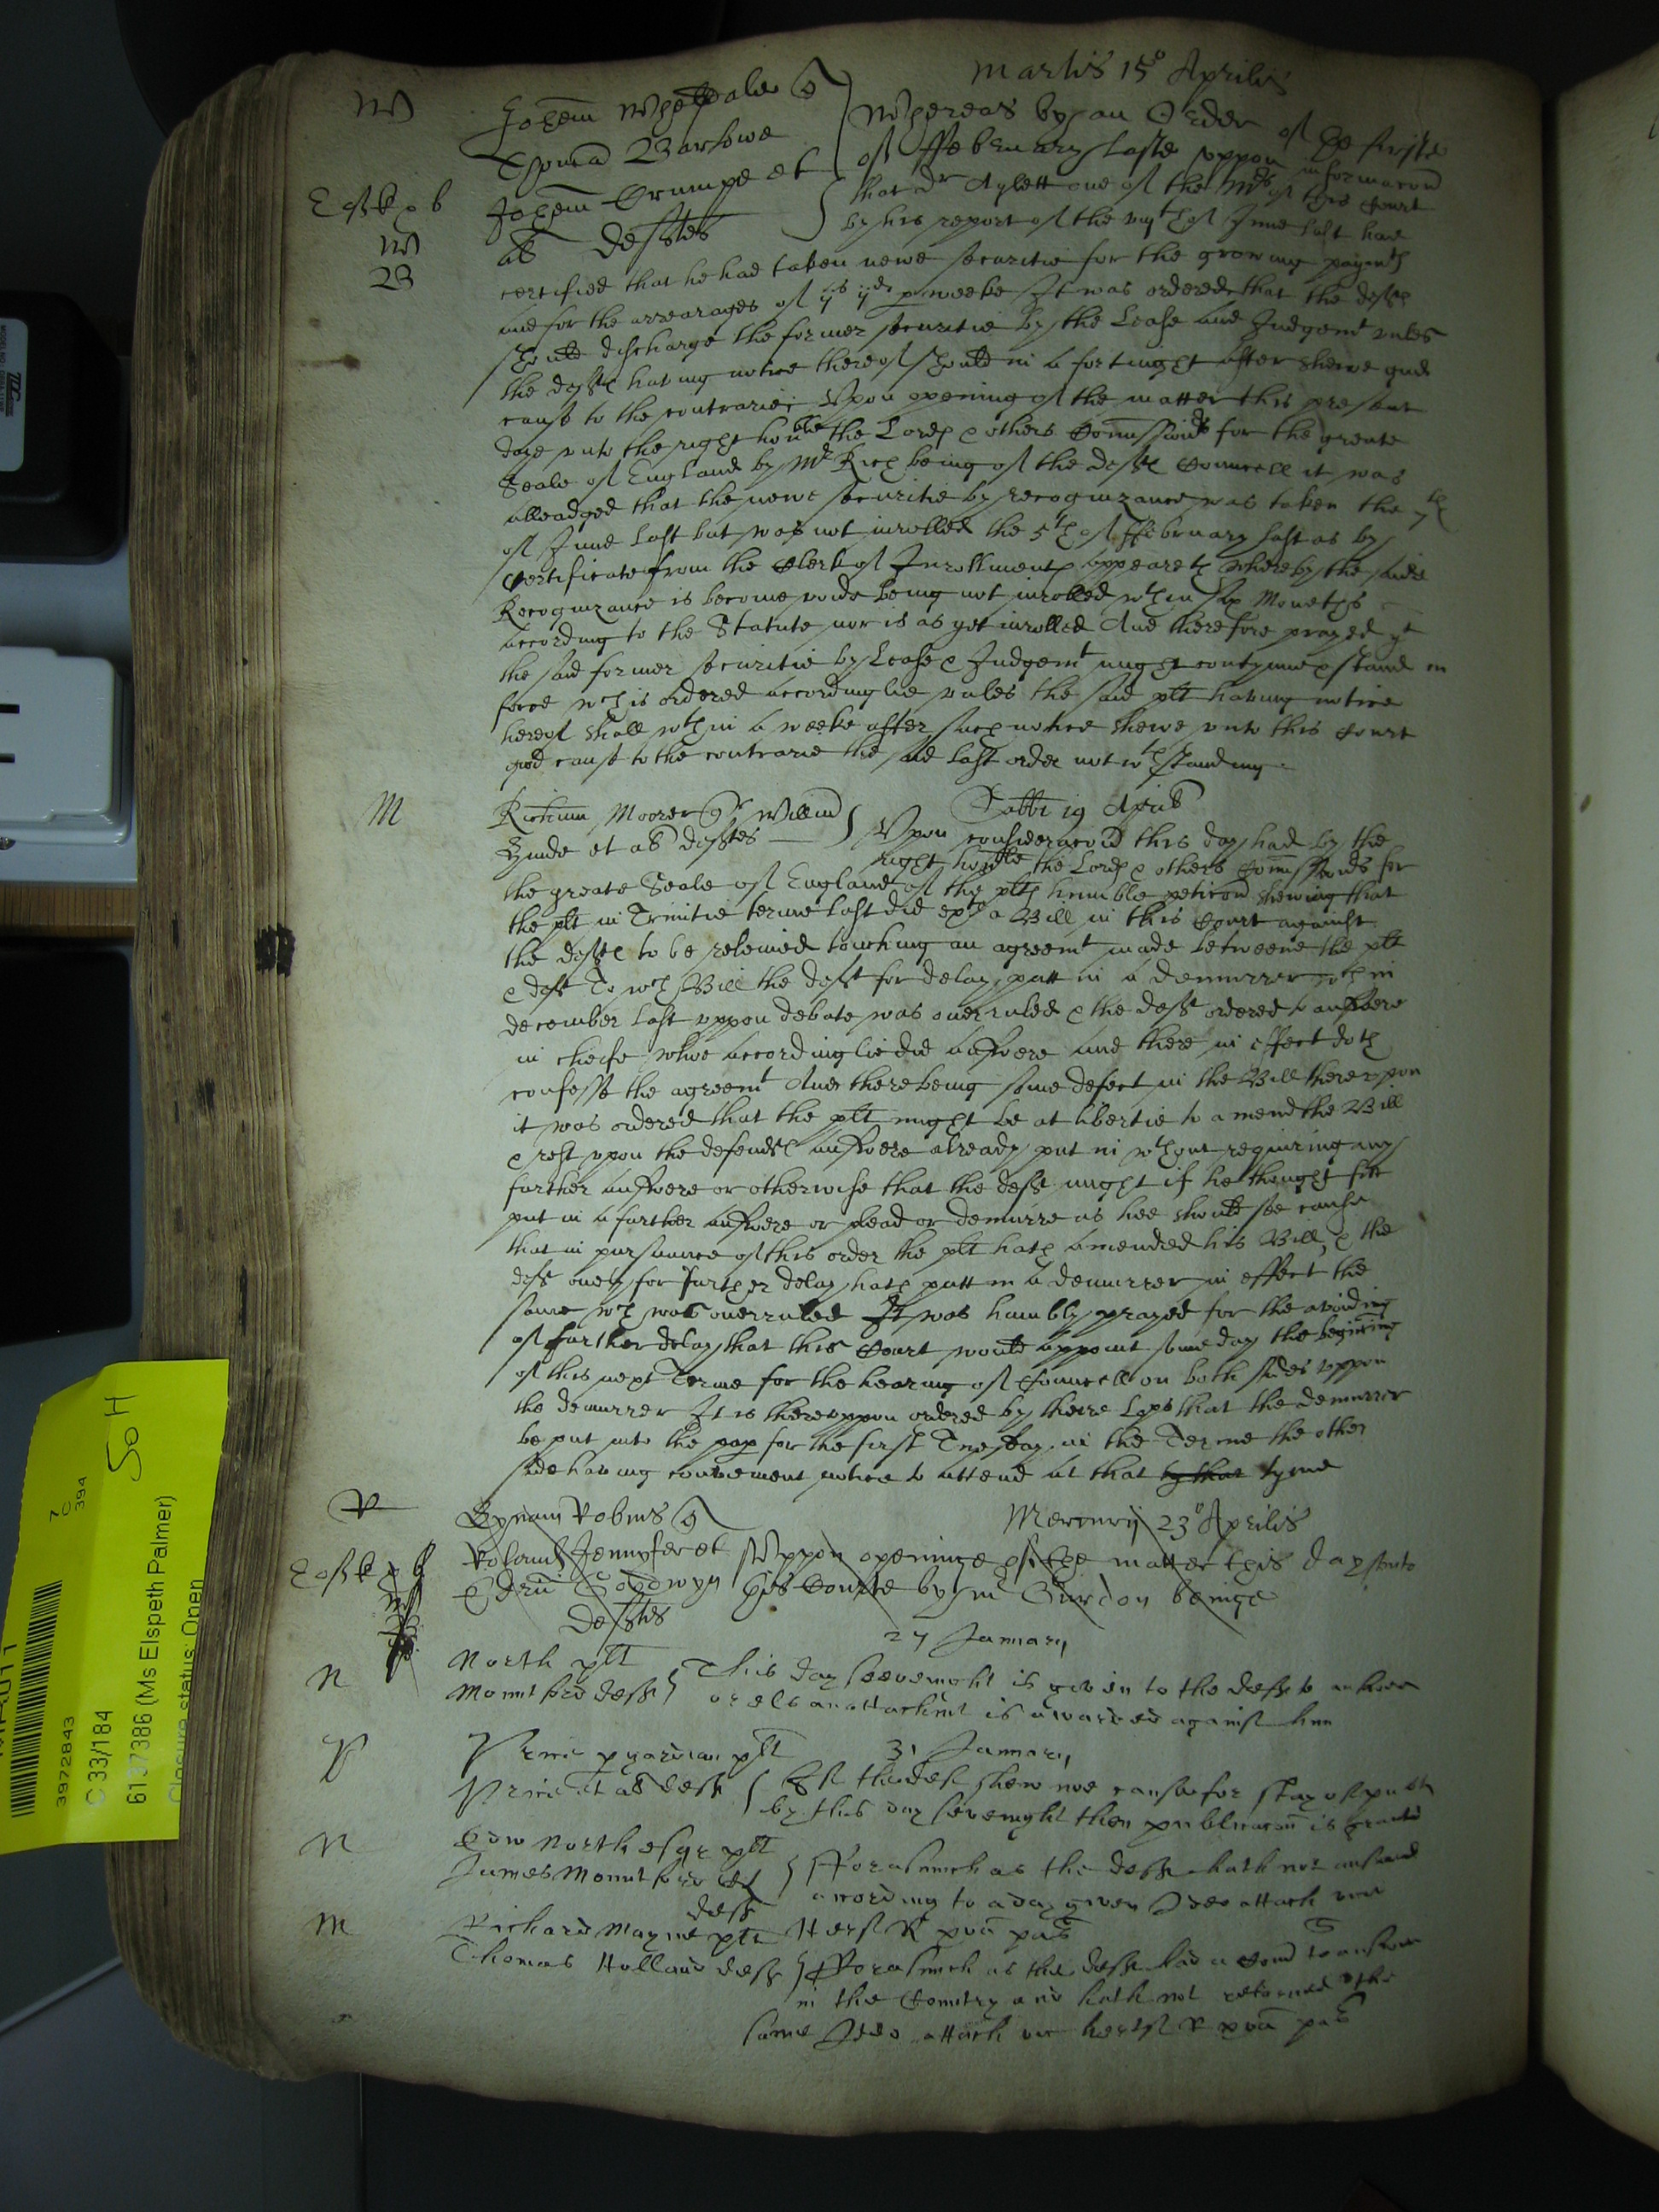 Martis 15o Aprilis
W Johem Whetdale q
Thoma Barlowe
Johem Crumpe et
al defts
W
B
Whereas by an Order of the firste
of ffebruary laste vppon informacon
that Dr Aylett one of the Mrs of this Court
by his report of the of June last had
certified that he had taken newe securitie for the growing paymts
and for the arrearages of p weeke It was ordered that the deft
should discharge the former securitie by the Lease and Judgemt vnles
the deft having notice thereof should in a fortnight after shewe good
cause to the contrarie Vpon opening of the matter this present
daye vnto the right hoble the Lords & others Comissionrs for the greate
Seale of England by Mr Rich being of the defts Councell it was
alleadged that the newe securitie by recognizance was taken the 7th
of June last but was not inrolled the 5th of ffebruary last as by
Certificate from the Clerk of Inrollments appeareth whereby the saide
Recognizance is become voide being not inrolled wthin six Moneths
according to the Statute nor is as yet inrolled And therefore prayed yt
the said former securitie by Lease & Judgemt might contynue & stand in
force wch is ordered accordinglie vnles the said plt having notice
hereof shall wthin a weeke after such notice shewe vnto this Court
good cause to the contrarie the said last order not wthstanding
M Richum Moorer qr Willm
Hinde et al defts
Sabbi 19 Aprilis
Vpon consideracon this day had by the
right hoble the Lords & others Comissionrs for
the greate Seale of England of the plts humble peticon shewing that
the plt in Trinitie terme last did exhibite a Bill in this Court against
the defts to be releived touching an agreemt made betweene the plt
& deft To wch Bill the deft for delay putt in a demurrer wch in
december last vppon debate was overruled & the deft ordered to answere
in cheife whoe accordinglie did answere and there in effect doth
confesse the agreemt And there being some defect in the Bill therevpon
it was ordered that the plt might be at libertie to amend the Bill
& rest vpon the defendts answere already put in wthout requiring any
further answere or otherwise that the deft might if he thought fitt
put in a further answere or plead or demurre as hee should see cause
that in pursuance of this order the plt hath amended his Bill, & the
deft onely for further delay hath putt in a demurrer in effect the
same wch was overruled It was humbly prayed for the avoiding
of further delay that this Court would appoint some day the begining
of this next Terme for the hearing of Councell on both sides vppon
the demurrer It is therevppon ordered by theire Lops that the demurrer
be put into the pap for the first Tuesday in the Terme the other
side having convenient notice to attend at that by that tyme
R Hyriam Robins q
Roland Jennyfer et
Edru Goodwyn
defts
Mercurij 23o Aprilis
Vppon openinge of the matter this day vnto
this Courte by mr Gurdon beinge
27 January
N North plt
Mountford deft
This day seavennight is given to the deft to answer
or els an attachmt is awarded against him
31 January
P Price p gardian plt
Price et al deft
If the deft shew noe cause for stay of publ
by this day sevenight then publicacon is graunted
N Edw North esqr plt
James Mountford et
deft
fforasmuch as the deft hath not answered
according to a day given Ideo attach
M Richard Mayne plt
Thomas Holland deft
fforasmuch as the deft had a Comd to answer
in the Countrey and hath not returned the
same Ideo attach
TDC
3972843
C 33/184
6137386 (Ms Elspeth Palmer)
Closure status: Open
7C
394
SoH